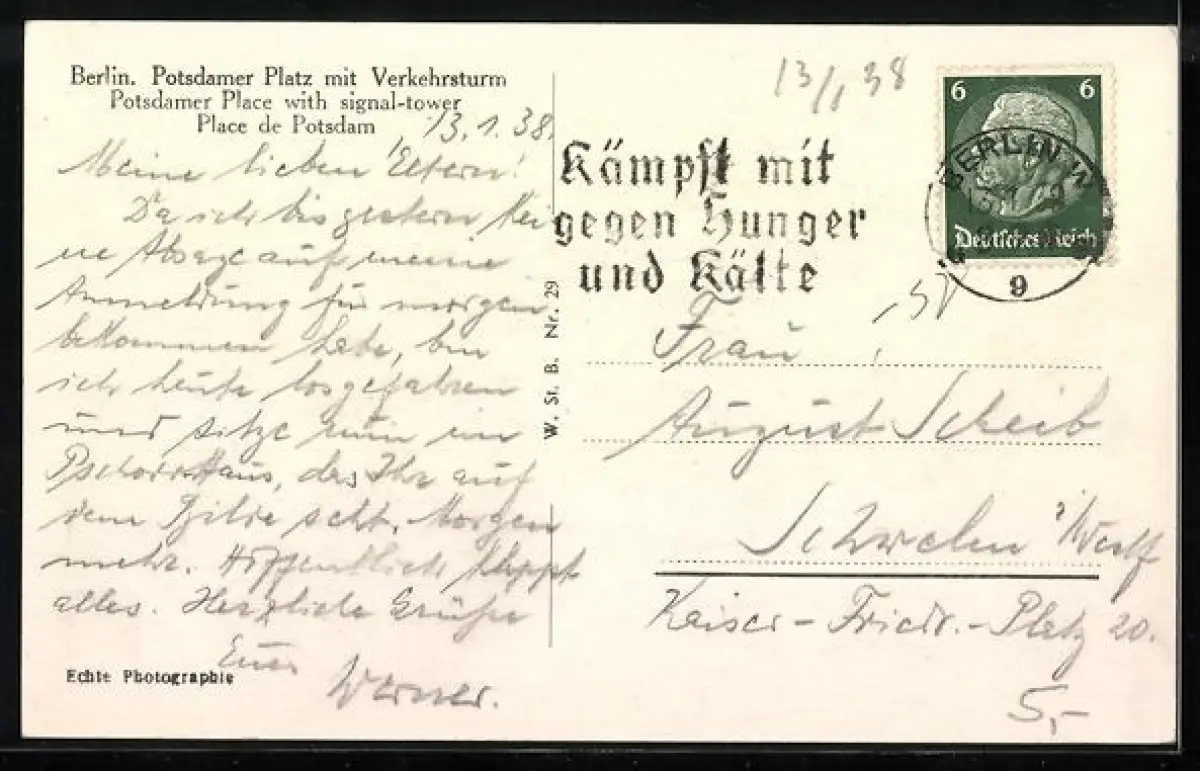 Berlin. Potsdamer Platz mit Verkehrsturm
Potsdamer Place with signal-tower
Place de Potsdam
13.1.38.
Meine lieben Eltern!
Da ich bis gestern kei
ne Absage auf meine
Anmeldung für morgen
bekommen habe, bin
ich heute losgefahren
und sitze nun im
Pschorr-Haus, das Ihr auf
dem Bilde seht. Morgen
mehr. Hoffentlich klappt
alles. Herzliche Grüße
Euer
Werner.
Echte Photographie
W. St. B. Nr. 29
13/1 38
Kämpft mit
gegen Hunger
und Kälte
6 6
Deutsches Reich
BERLIN W
9
Frau
August Scheib
Schwelm i/Westf
Kaiser-Friedr.-Platz 20.
5,-